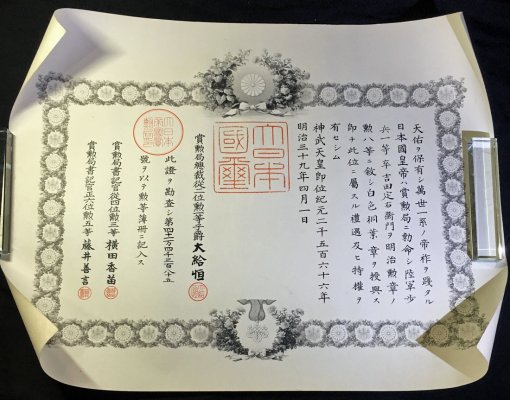 天佑ヲ保有シ萬世一系ノ帝祚ヲ踐タル
日本國皇帝ハ賞勲局ニ勅命シ陸軍歩
兵一等卒吉田定右衛門ヲ明治勲章ノ
勲八等ニ敘シ白色桐葉章ヲ授與ス
即チ此位ニ屬スル禮遇及ヒ特權ヲ
有セシム
神武天皇即位紀元二千五百六十六年
明治三十九年四月一日
大日本國璽
賞勲局總裁從二位勲一等子爵大給恒
此證ヲ勘査シ第四十二万四千二百八十五
號ヲ以テ勲等簿冊ニ記入ス
賞勲局書記官從四位勲三等 横田香苗
賞勲局書記官正六位勲五等 藤井善言